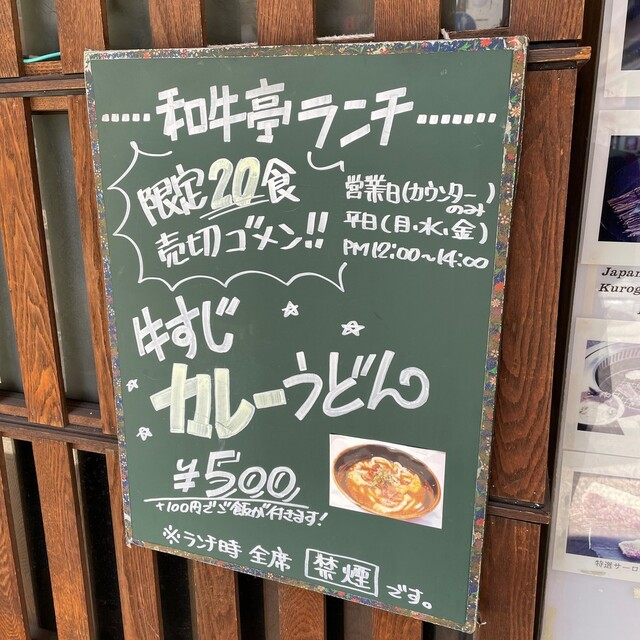 ……和牛亭ランチ……
限定20食
売切ゴメン!!
営業日(カウンターのみ)
平日(月・水・金)
PM12:00〜14:00
牛すじ
カレーうどん
¥500
+100円でご飯が付きます!
※ランチ時 全席 禁煙 です。
Japan
Kurog
特選サーロ